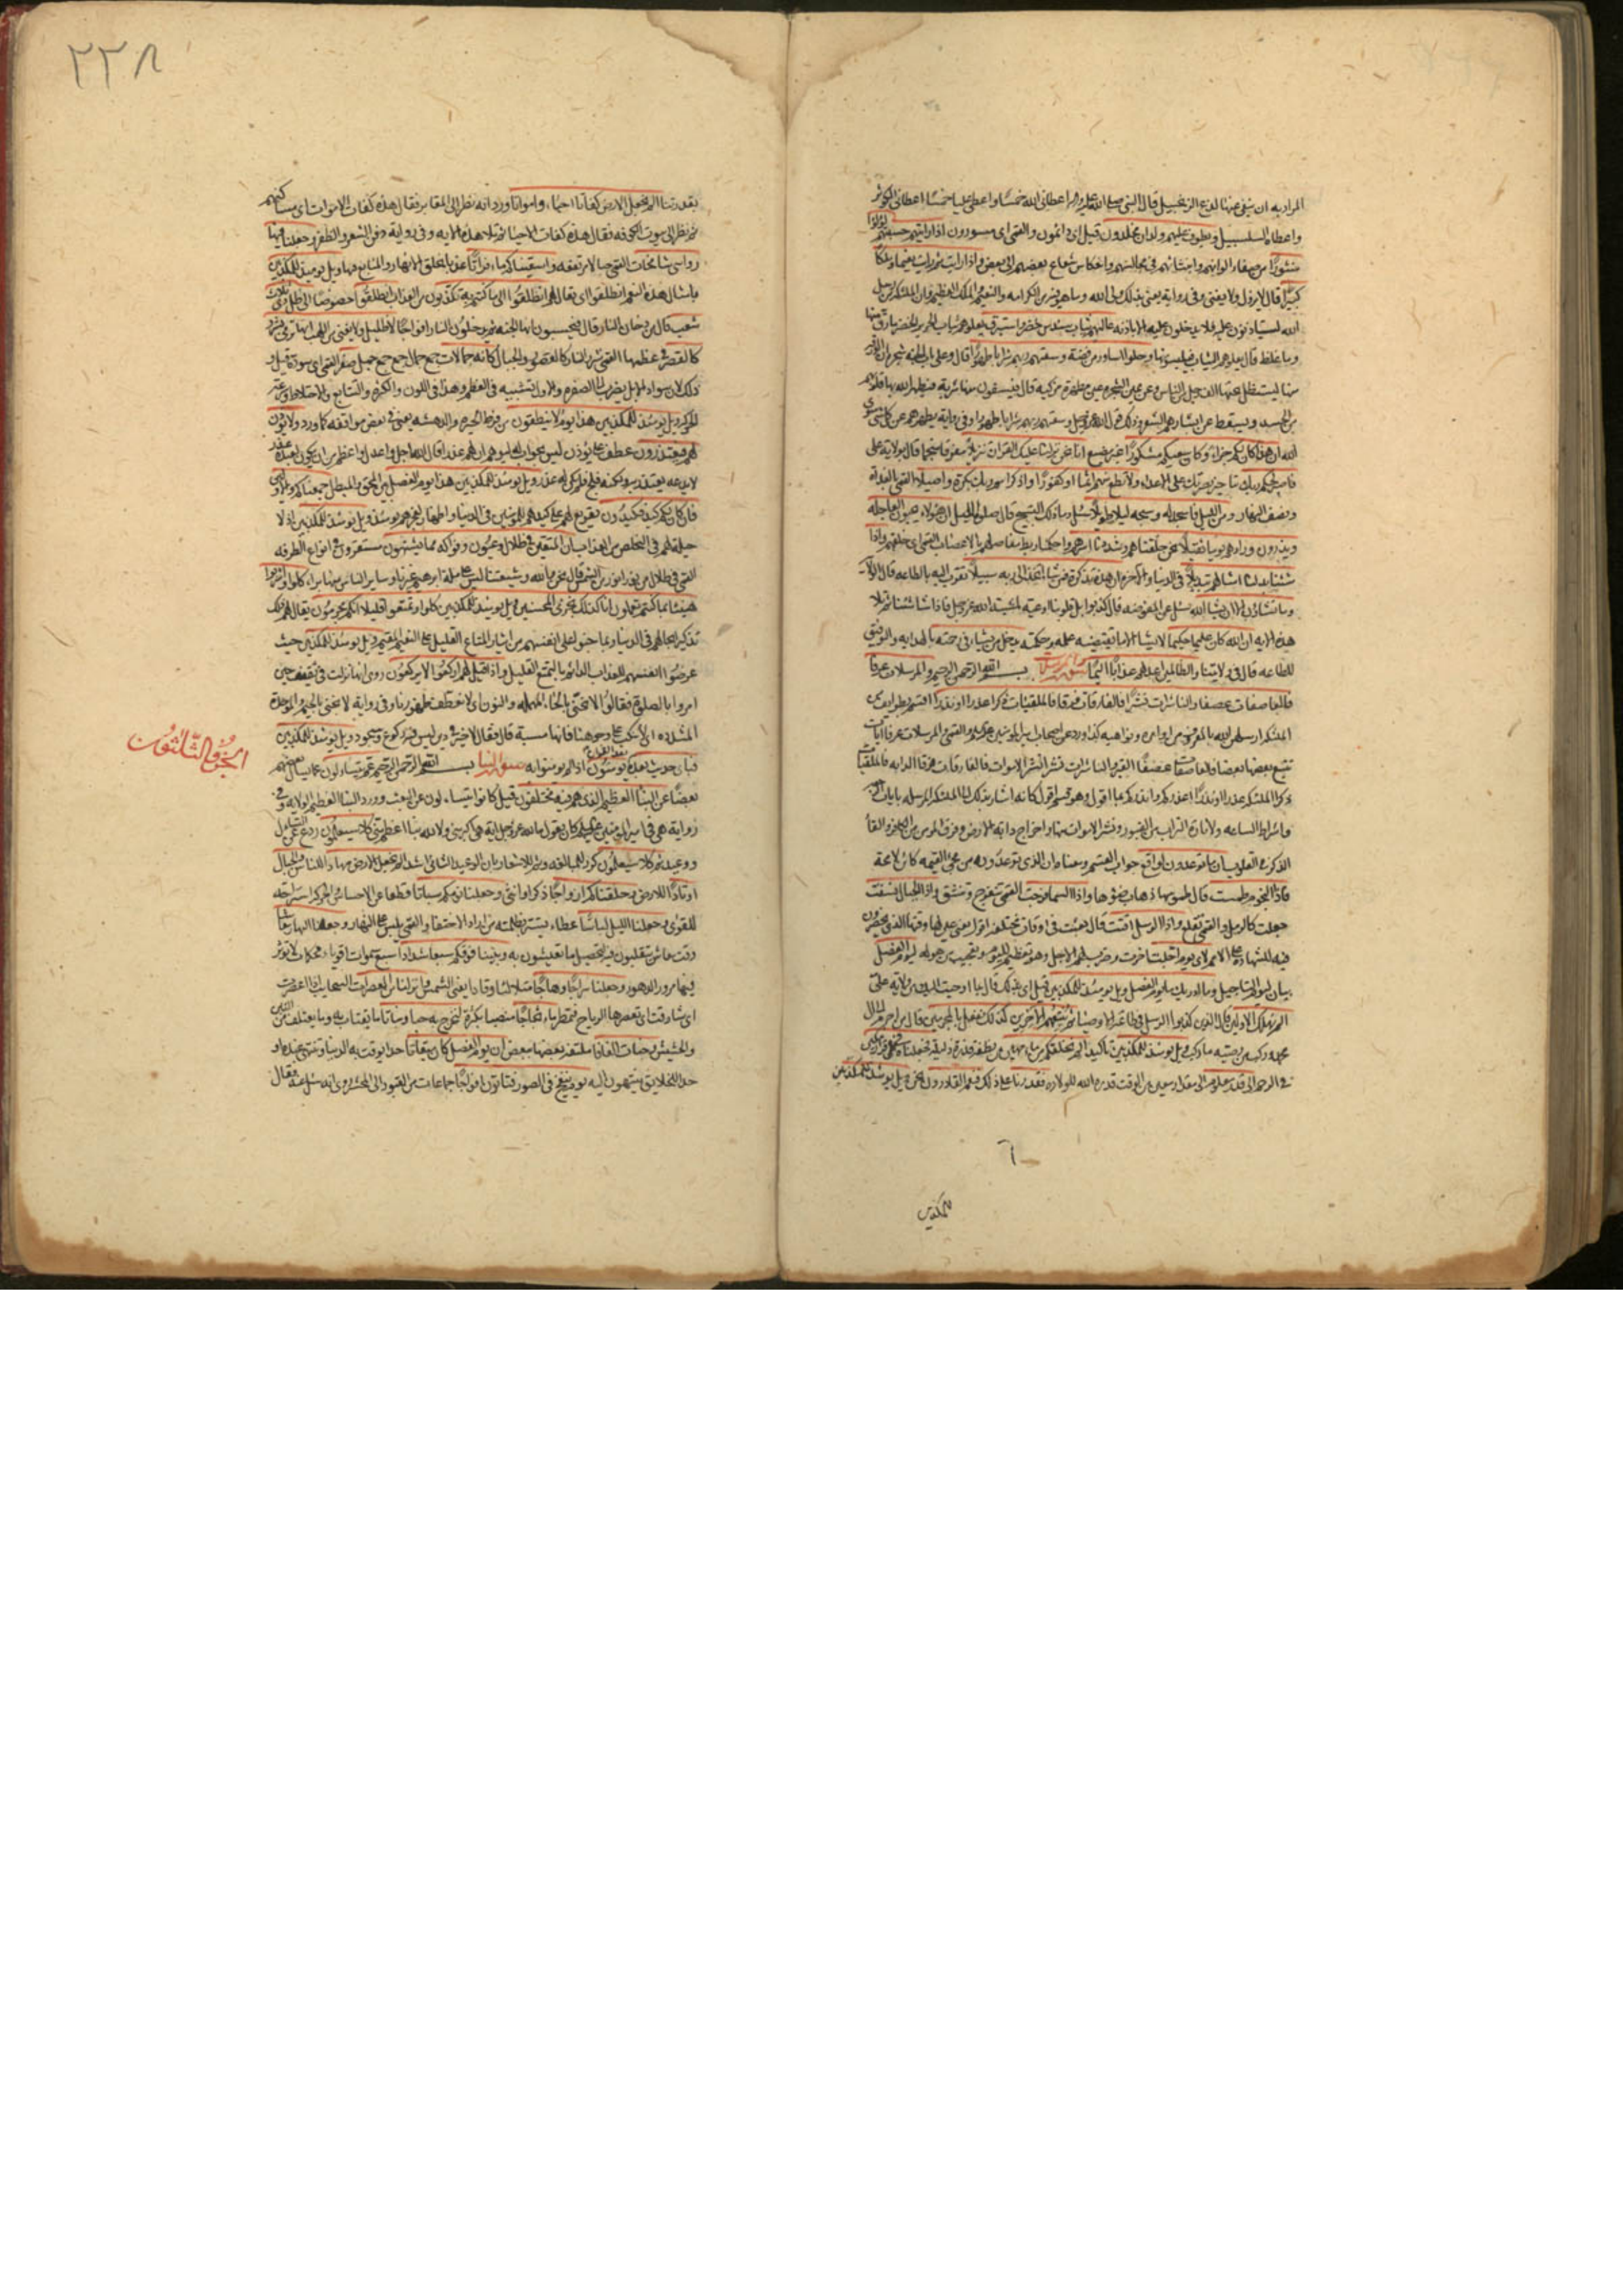 المراد به ان ينفي عنها لذع الزنجبيل قال النبي صلى الله عليه واله اعطاني الله خمسا واعطى عليا خمسا اعطاني الكوثر
واعطاه السلسبيل ويطوف عليهم ولدان مخلدون قيل اى دائمون والقمى اى مسورون اذا رايتهم حسبتهم لؤلؤا
منثورا من صفاء الوانهم وانبثاثهم في مجالسهم وانعكاس شعاع بعضهم الى بعض واذا رايت ثم رايت نعيما وملكا
كبيرا قال لا يزول ولا يفنى وفي رواية يعني بذلك ولي الله وما هو فيه من الكرامة والنعيم والملك العظيم وان الملئكة من رسل
الله ليستاذنون عليه فلا يدخلون عليه الا باذنه عاليهم ثياب سندس خضر واستبرق يعلوهم ثياب الحرير الخضر ما رق منها
وما غلظ قال يعلوهم الثياب فيلبسونها وحلوا اساور من فضة وسقيهم ربهم شرابا طهورا قال وعلى باب الجنة شجرة ان الورقة
منها ليستظل تحتها الف رجل من الناس وعن يمين الشجرة عين مطهرة مزكية قال فيسقون منها شربة فيطهر الله بها قلوبهم
من الحسد ويسقط عن ابشارهم الشعر وذلك قول الله عز وجل وسقيهم ربهم شرابا طهورا وفي رواية يطهرهم عن كل شئ سوى
الله ان هذا كان لكم جزاء وكان سعيكم مشكورا غير مضيع انا نحن نزلنا عليك القران تنزيلا مفرقا منجما قال بولاية على
فاصبر لحكم ربك بتاخير نصرتك على الاعداء ولا تطع منهم اثما او كفورا واذكر اسم ربك بكرة واصيلا القمى بالغداة
ونصف النهار ومن الليل فاسجد له وسبحه ليلا طويلا سئل وما ذلك التسبيح قال صلوة الليل ان هؤلاء يحبون العاجلة
ويذرون وراءهم يوما ثقيلا نحن خلقناهم وشددنا اسرهم واحكمنا ربط مفاصلهم بالاعصاب القمى اى خلقهم واذا
شئنا بدلنا امثالهم تبديلا في الدنيا والاخرة ان هذه تذكرة فمن شاء اتخذ الى ربه سبيلا تقرب اليه بالطاعة قال الولاية
وما تشاؤن الا ان يشاء الله سئل عن المفوضة قال كذبوا بل قلوبنا اوعية لمشية الله عز وجل فاذا شاء شئنا ثم تلا
هذه الاية ان الله كان عليما حكيما لا يشاء الا ما تقتضيه علمه وحكمته يدخل من يشاء في رحمته بالهداية والتوفيق
للطاعة قال في ولايتنا والظالمين اعد لهم عذابا اليما سورة المرسلات بسم الله الرحمن الرحيم والمرسلات عرفا
فالعاصفات عصفا والناشرات نشرا فالفارقات فرقا فالملقيات ذكرا عذرا او نذرا اقسم بطوايف من
الملئكة ارسلهن الله بالمعروف من اوامره ونواهيه كذا ورد عن اصحاب امير المؤمنين عليه السلام والقمى والمرسلات عرفا ايات
تتبع بعضها بعضا والعاصفات عصفا القبر والناشرات نشرا نشر الاموات فالفارقات فرقا الدابة فالملقيات
ذكرا الملئكة عذرا او نذرا اعذركم وانذركم بما اقول وهو قسم اقول كانه اشار بذلك الى الملئكة المرسلة بايات الرجعة
واشراط الساعة ولاثارة التراب من القبور ونشر الاموات منها واخراج دابة الارض وفرق المؤمن من الكافر والقاء
الذكر في القلوب ان ما توعدون لواقع جواب القسم ومعناه ان الذى توعدونه من مجئ القيمة كائن لا محالة
فاذا النجوم طمست قال طموسها ذهاب ضوئها واذا السماء فرجت القمى تنفرج وتنشق واذا الجبال نسفت
جعلت كالرمل والقمى تقلع واذا الرسل اقتت قال بعثت في اوقات مختلفة اقول يعني عين لها وقتها الذى يحضرون
فيه للشهادة على الامم لاى يوم اجلت اخرت وضرب لهم الاجل وهو تعظيم لليوم وتعجيب من هوله ليوم الفصل
بيان ليوم التاجيل وما ادريك ما يوم الفصل ويل يومئذ للمكذبين قيل اى بذلك قال بما اوحيت اليك من ولاية على
الم نهلك الاولين قال الذين كذبوا الرسل في طاعة الاوصياء ثم نتبعهم الاخرين كذلك نفعل بالمجرمين قال من اجرم الى ال
محمد وركب من وصيه ما ركب ويل يومئذ للمكذبين تاكيد الم نخلقكم من ماء مهين من نطفة قذرة ذليلة فجعلناه في قرار مكين
في الرحم الى قدر معلوم الى مقدار معين من الوقت قدره الله للولادة فقدرنا على ذلك فنعم القادرون نحن ويل يومئذ للمكذبين
للمكذبين
٢٣٨
بقدرتنا الم نجعل الارض كفاتا احياء وامواتا ورد انه نظر الى المقابر فقال هذه كفات الاموات اى مساكنهم
ثم نظر الى بيوت الكوفة فقال هذه كفات الاحياء ثم تلا هذه الاية وفي رواية دفن الشعر والظفر وجعلنا فيها
رواسي شامخات القمى جبالا مرتفعة واسقيناكم ماء فراتا عذبا بخلق الانهار والمنابع فيها ويل يومئذ للمكذبين
بامثال هذه النعم انطلقوا اى يقال لهم انطلقوا الى ما كنتم به تكذبون من العذاب انطلقوا خصوصا الى ظل ذى ثلاث
شعب قال من دخان النار قال فيحسبون انها الجنة ثم يدخلون النار افواجا لا ظليل ولا يغني من اللهب انها ترمى بشرر
كالقصر في عظمها القمى شرر النار كالقصور والجبال كانه جمالات جمع جمال جمع جمل صفر القمى اى سود قيل و
ذلك لان سواد الابل يضرب الى الصفرة والاول تشبيه في العظم وهذا في اللون والكثرة والتتابع والاختلاط وسرعة
الحركة ويل يومئذ للمكذبين هذا يوم لا ينطقون من فرط الحيرة والدهشة يعني في بعض مواقفه كما ورد ولا يؤذن
لهم فيعتذرون عطف على يؤذن ليس بجواب له ليوهم ان لهم عذرا قال الله اجل واعدل واعظم من ان يكون لعبده عذر
لا يدعه يعتذر به ولكنه فلج فلم يكن له عذر ويل يومئذ للمكذبين هذا يوم الفصل بين المحق والمبطل جمعناكم والاولين
فان كان لكم كيد فكيدون تقريع لهم على كيدهم للمؤمنين في الدنيا واظهار لعجزهم يومئذ ويل يومئذ للمكذبين اذ لا
حيلة لهم في التخلص من العذاب ان المتقين في ظلال وعيون وفواكه مما يشتهون مستقرون في انواع الطرفة
القمى في ظلال من نور انور من الشمس قال نحن والله وشيعتنا ليس على ملة ابرهيم غيرنا وساير الناس منها براء كلوا واشربوا
هنيئا بما كنتم تعملون انا كذلك نجزى المحسنين ويل يومئذ للمكذبين كلوا وتمتعوا قليلا انكم مجرمون يقال لهم ذلك
تذكيرا بحالهم في الدنيا وبما جنوا على انفسهم من ايثار المتاع القليل على النعيم المقيم ويل يومئذ للمكذبين حيث
عرضوا انفسهم للعذاب الدائم بالتمتع القليل واذا قيل لهم اركعوا لا يركعون روى انها نزلت في ثقيف حين
امروا بالصلوة فقالوا لا نحني بالحاء المهملة والنون اى لا نعطف ظهورنا وفي رواية لا نجبي بالجيم والموحدة
المشددة اى لا ننكب على وجوهنا فانها مسبة قال فقال لا خير في دين ليس فيه ركوع وسجود ويل يومئذ للمكذبين
فباى حديث بعده يؤمنون اذا لم يؤمنوا به سورة النبا بسم الله الرحمن الرحيم عم يتساءلون عما يسال بعضهم
بعضا عن النبا العظيم الذى هم فيه مختلفون قيل كانوا يتساءلون عن البعث وورد النبا العظيم الولاية وفي
رواية هي في امير المؤمنين عليه السلام كان يقول ما لله عز وجل اية هي اكبر مني ولا لله نبا اعظم مني كلا سيعلمون ردع عن التساءل
ووعيد ثم كلا سيعلمون كرر للمبالغة وثم للاشعار بان الوعيد الثاني اشد الم نجعل الارض مهادا للناس والجبال
اوتادا للارض وخلقناكم ازواجا ذكرا وانثى وجعلنا نومكم سباتا قطعا عن الاحساس والحركة استراحة
للقوى وجعلنا الليل لباسا غطاء يستتر بظلمته من اراد الاختفاء والقمى يلبس على النهار وجعلنا النهار معاشا
وقت معاش تتقلبون فيه لتحصيل ما تعيشون به وبنينا فوقكم سبعا شدادا سبع سموات اقوياء محكمات لا يؤثر
فيها مرور الدهور وجعلنا سراجا وهاجا متلالئا وقادا يعني الشمس وانزلنا من المعصرات السحايب اذا اعصرت
اى شارفت ان تعصرها الرياح فتمطر ماء ثجاجا منصبا بكثرة لنخرج به حبا ونباتا ما يقتات به وما يعتلف من التبن
والحشيش وجنات الفافا ملتفة بعضها ببعض ان يوم الفصل كان ميقاتا حدا يوقت به الدنيا وتنتهي عنده او
حدا للخلايق ينتهون اليه يوم ينفخ في الصور فتاتون افواجا جماعات من القبور الى المحشر روى انه سئل عنه فقال
الجزو الثلثون